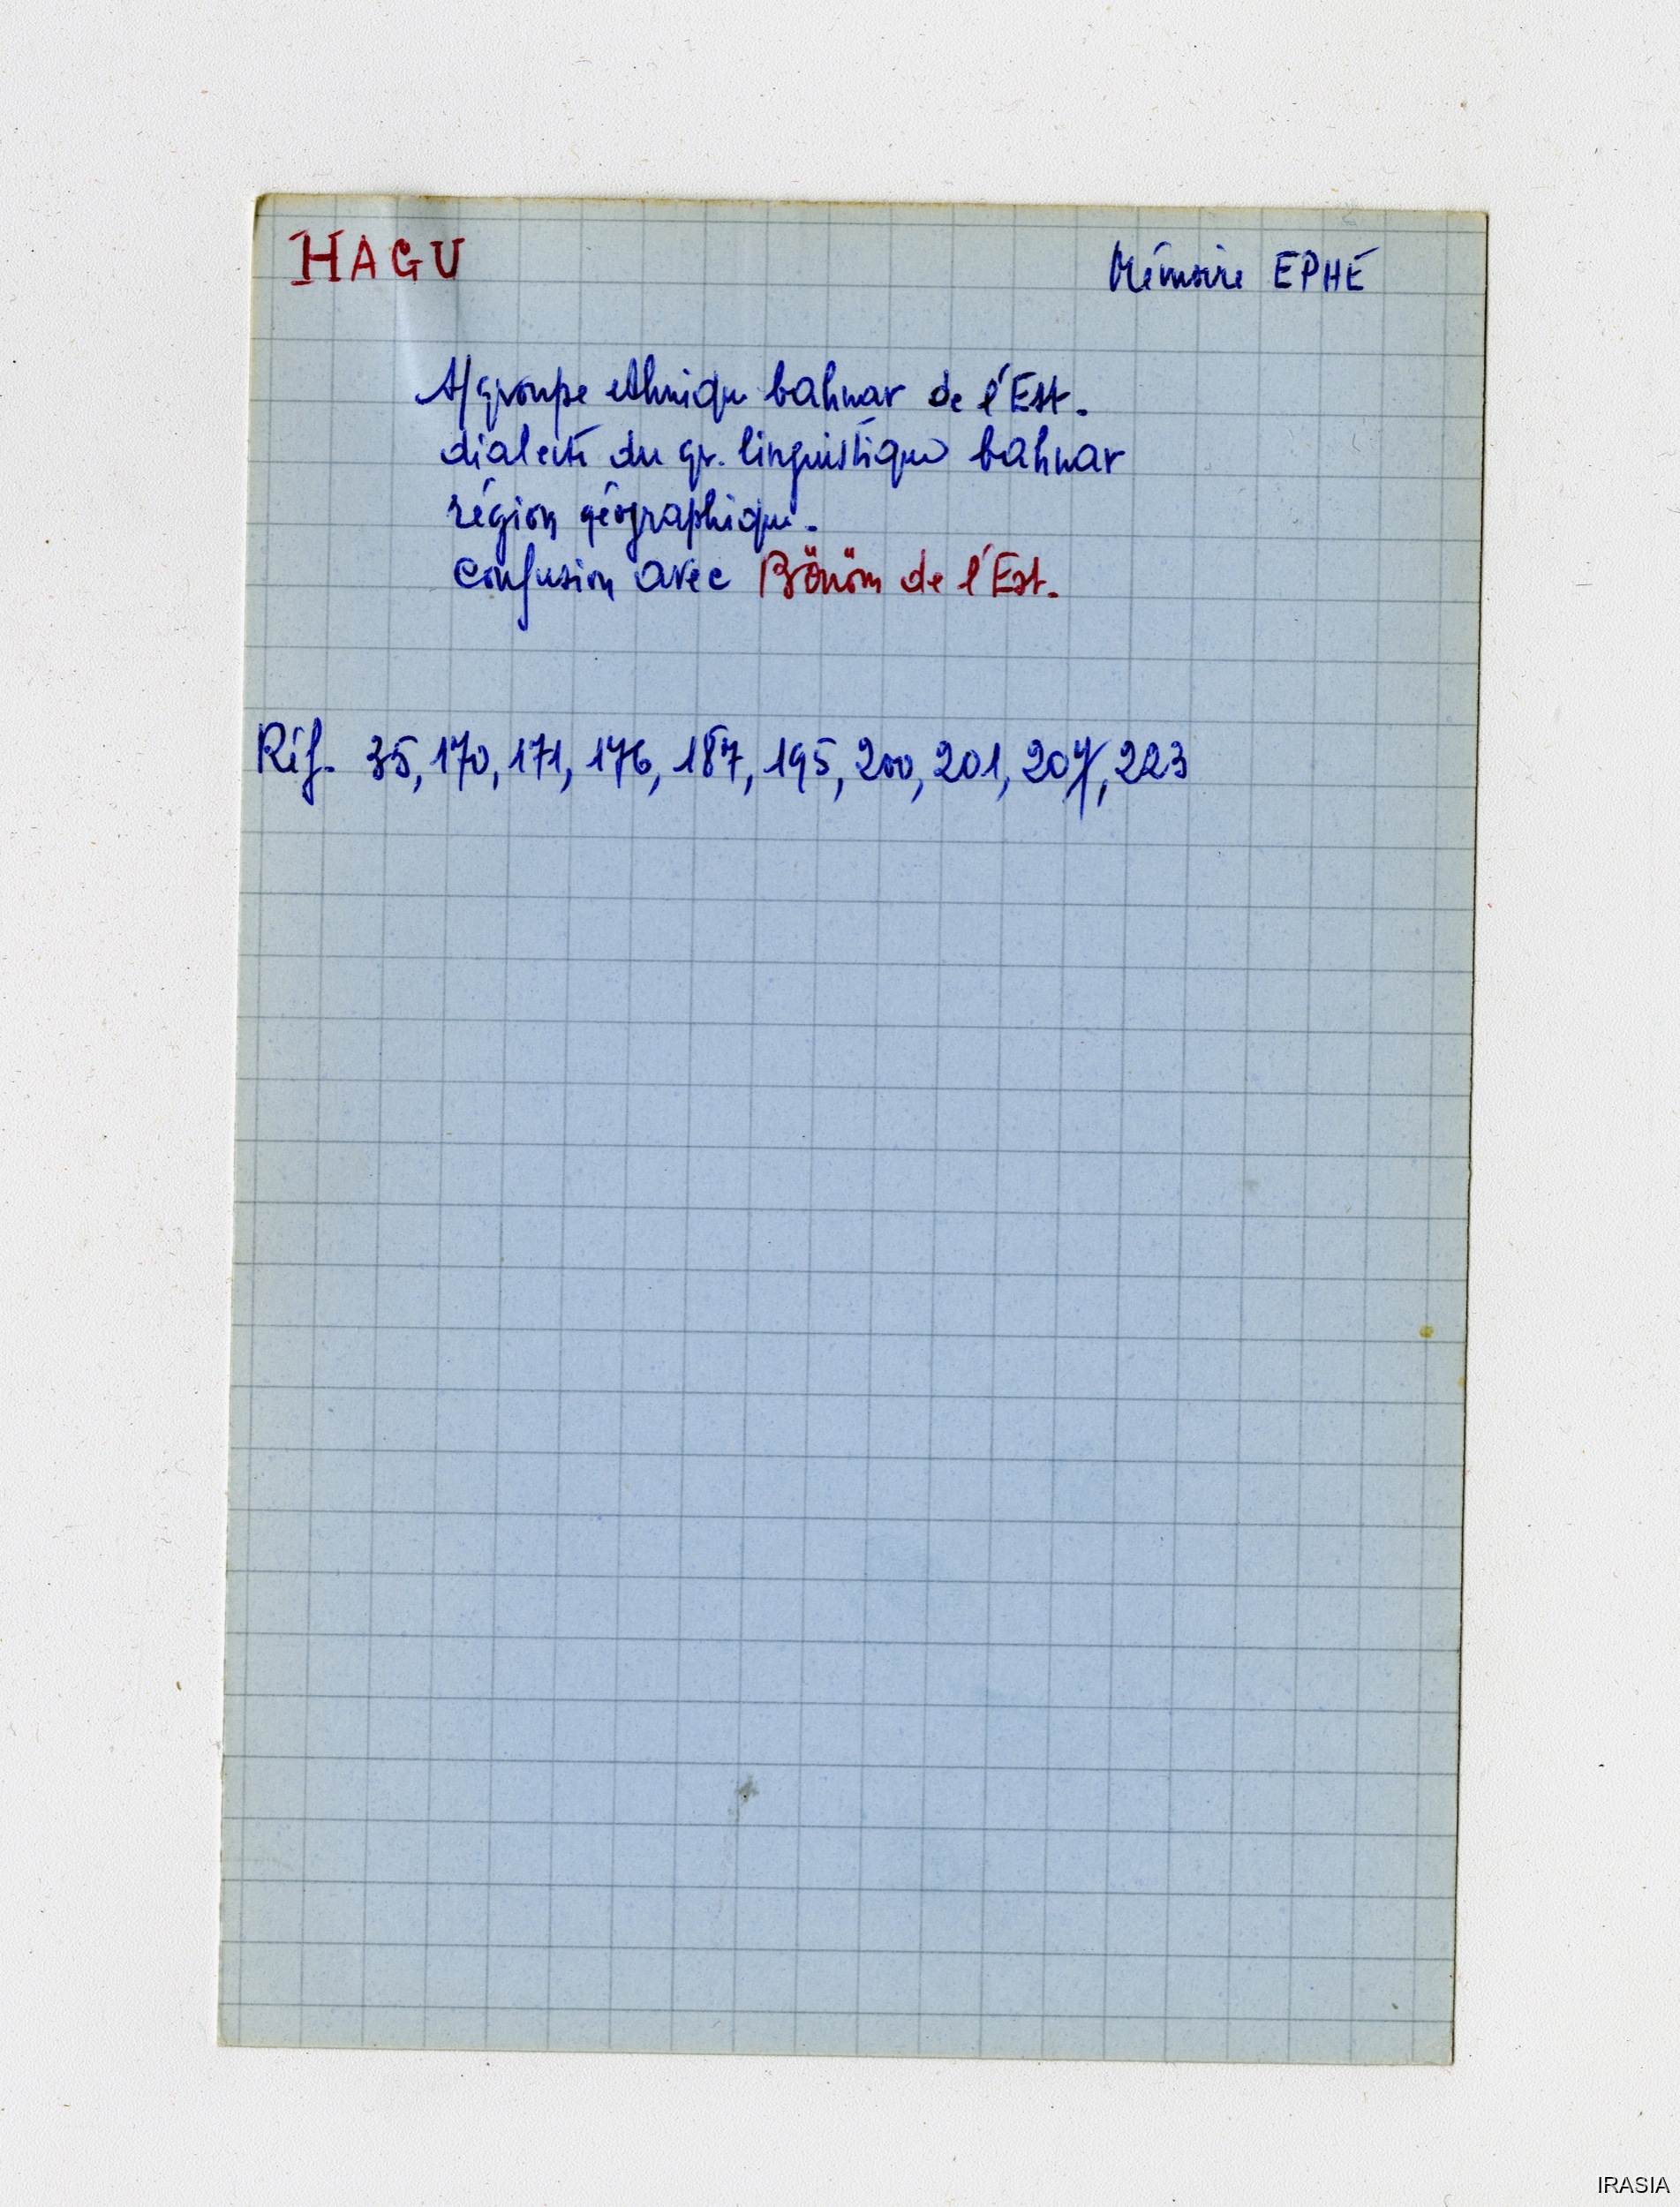 HAGU
Mémoire EPHE
s/groupe ethnique bahnar de l'Est.
dialecte du gr. linguistique bahnar
région géographique.
confusion avec Bönöm de l'Est.
Réf. 35, 170, 171, 176, 187, 195, 200, 201, 204, 223
IRASIA